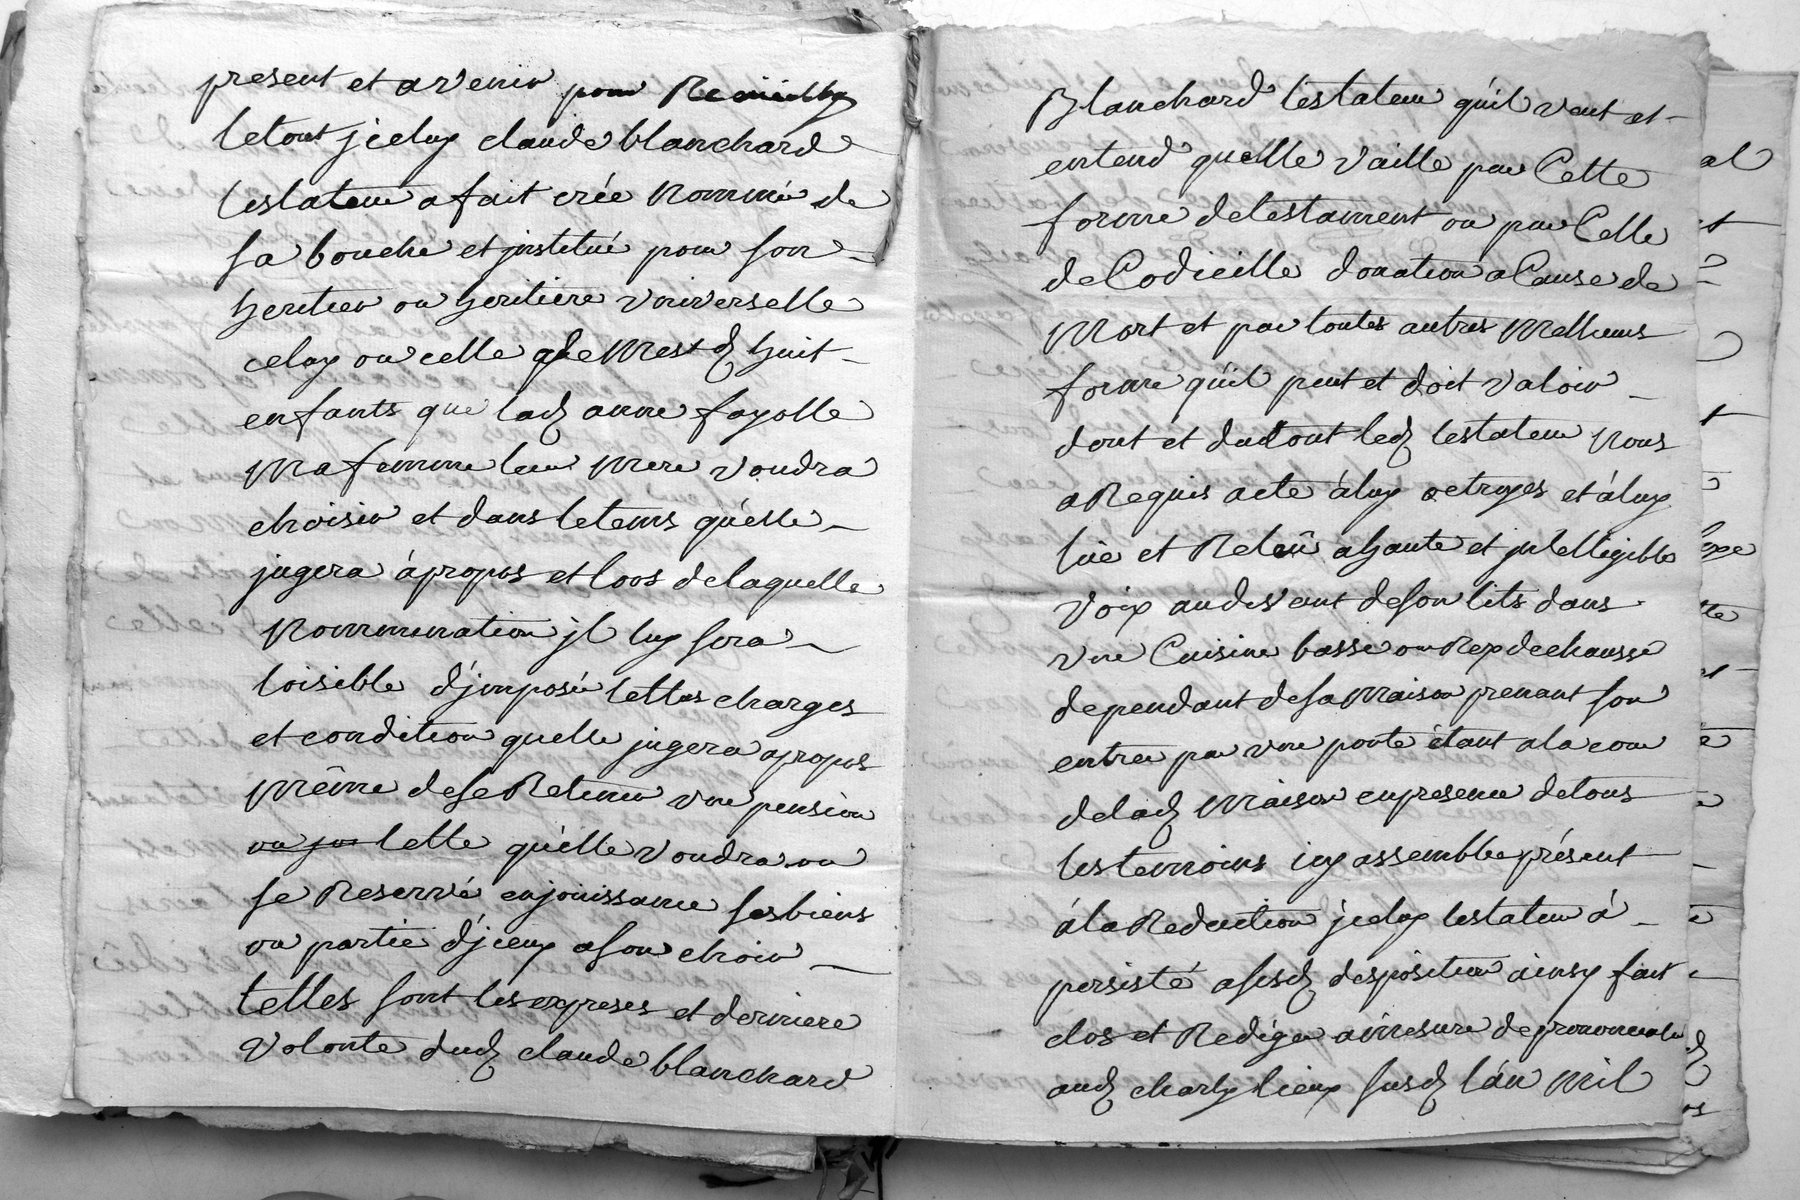 present et avenir pour Recüeillir
letout jceluy claude blanchard
testateur a fait crée nommé de
sa bouche et jnstitué pour son
heritier ou heritiere vniverselle
celuy ou celle de mesd huit
enfants que lad anne fayolle
ma femme leur mere voudra
choisir et dans letems qu'elle
jugera àpropos et lors delaquelle
nommination jl luy sera
loisible d'jmposér telles charges
et condition quelle jugera apropos
même dese Retenir vne pension
telle qu'elle voudra ou
se Reservé enjouissance ses biens
ou partie d'jceux ason choix
telles sont les expreses et derniere
volonte dud claude blanchard
Blanchard testateur qu'il veut et
entend quelle vaille par Cette
forme detestament ou par Celle
deCodicille donation aCause de
Mort et par toutes autres Melheurs
forme qu'il peut et doit valoir
dont et dudtout led testateur nous
aRequis acte àluy octroyes et àluy
lüe et Releü àhaute et jntelligible
voix audevant deson lits dans
vne Cuisine basse ou Rexdechausse
dependant desamaison prenant son
entrée par vne porte étant ala cour
delad maison enpresence detous
lestemoins icy assemble présent
àlaRedaction jceluy testateur à
persisté asesd despositions ainsy fait
clos et Redigé amesure deprononciation
aud charly lieux susd l'an mil
al
et